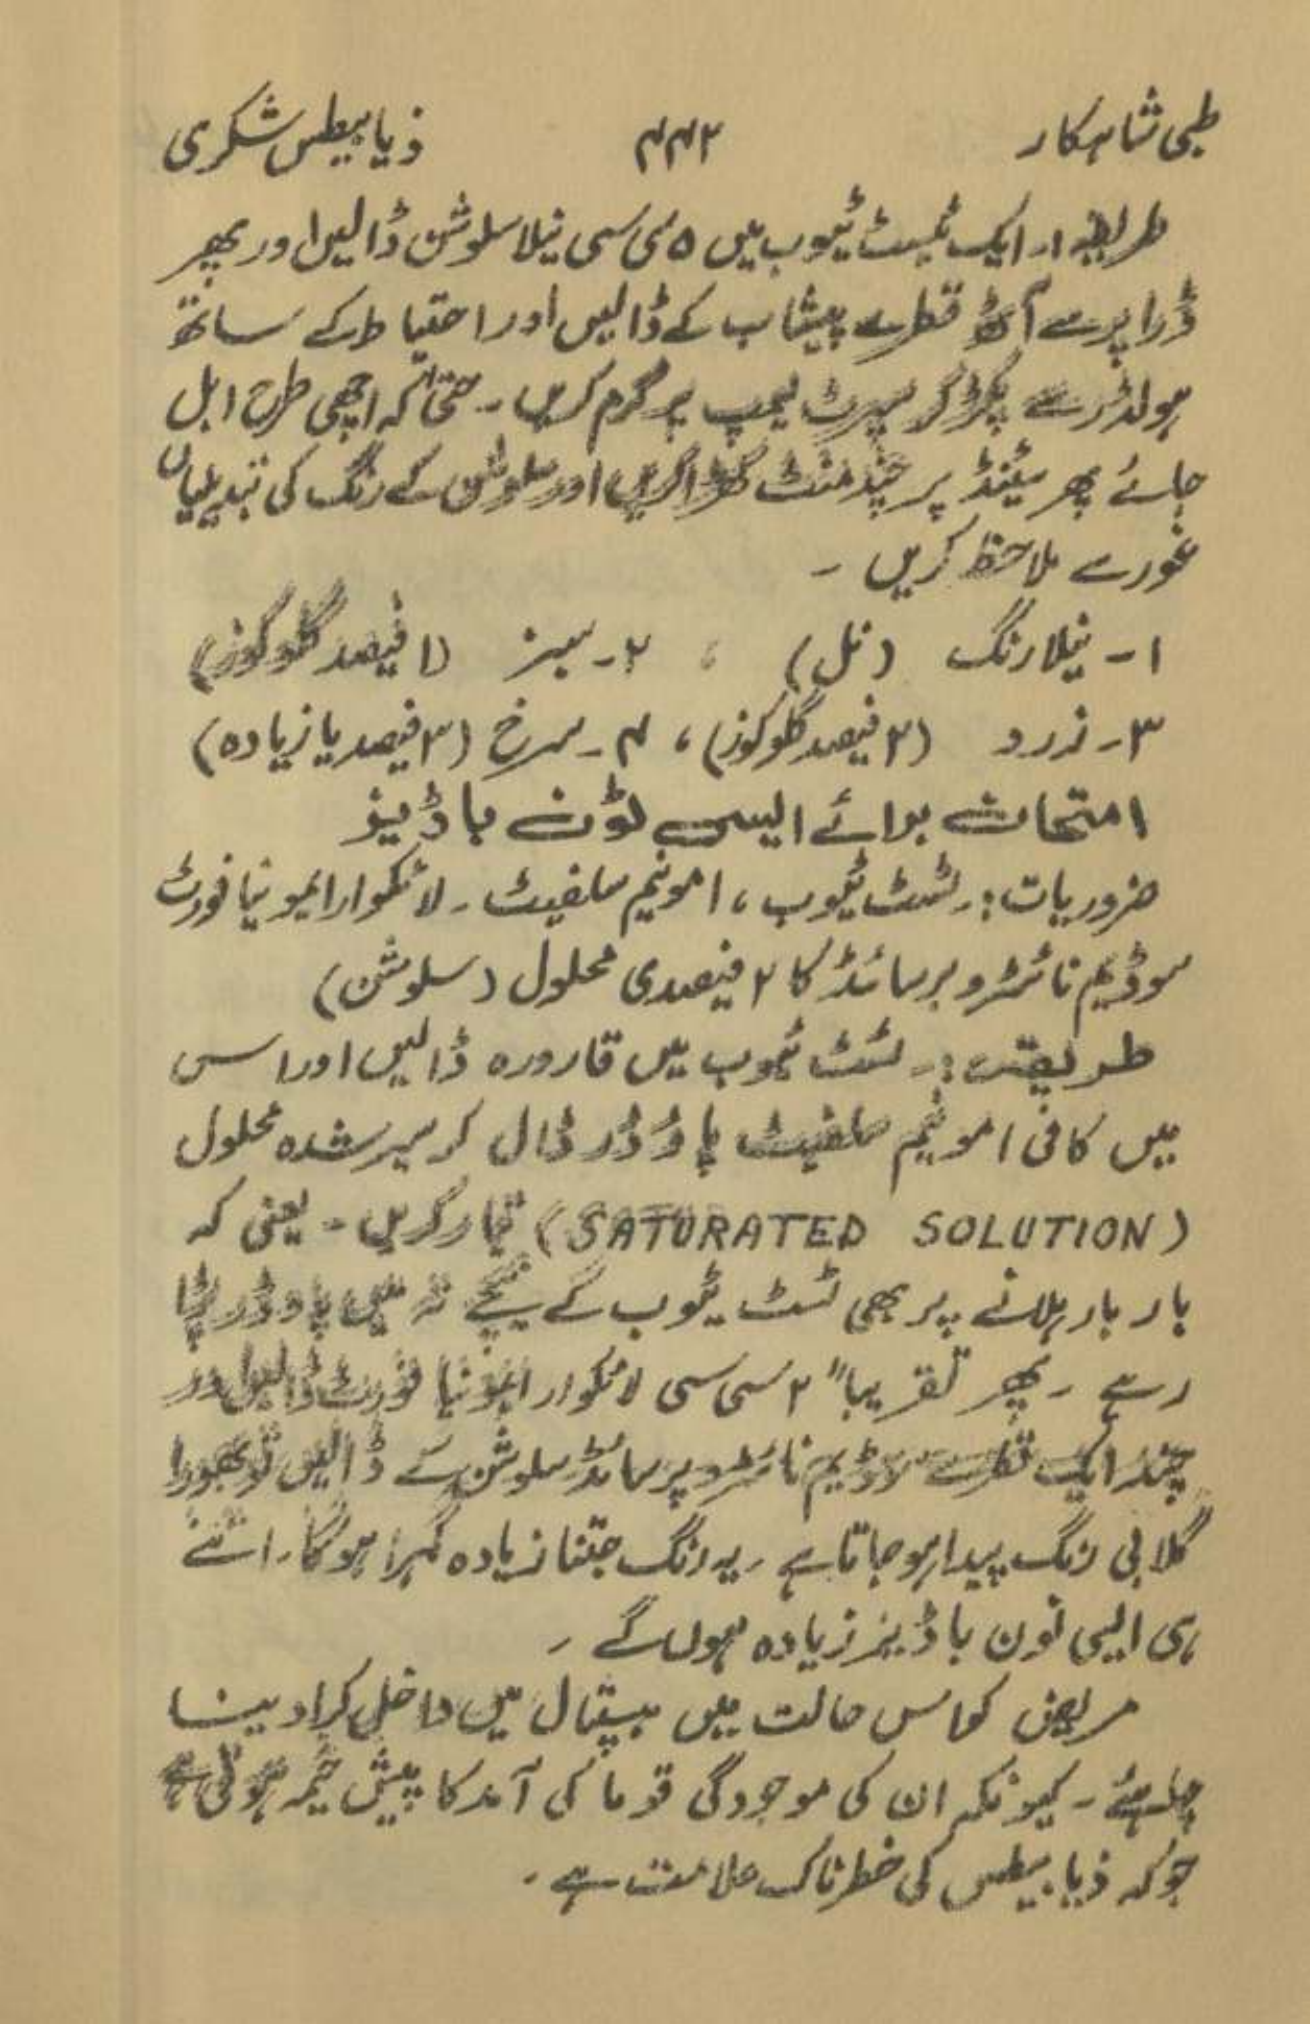 طبی شاہکار ۴۴۲ ذیابیطس شکری
طریقہ :۔ ایک ٹیسٹ ٹیوب میں ۵ سی سی نیلا سلوشن ڈالیں اور پھر
ڈراپر سے آٹھ قطرے پیشاب کے ڈالیں اور احتیاط کے ساتھ
ہولڈر سے پکڑ کر سپرٹ لیمپ پر گرم کریں ۔ حتیٰ کہ اچھی طرح ابل
جائے پھر سٹینڈ پر چند منٹ کھڑا کریں اور سلوشن کے رنگ کی تبدیلیاں
غور سے ملاحظہ کریں ۔
۱ - نیلا رنگ (نل) ، ۲ - سبز (۱ فیصد گلوکوز)
۳ - زرد (۲ فیصد گلوکوز) ، ۴ - سرخ (۳ فیصد یا زیادہ)
امتحان برائے ایسی ٹون باڈیز
ضروریات :۔ ٹسٹ ٹیوب ، امونیم سلفیٹ ۔ لائکوار ایمونیا فورٹ
سوڈیم نائٹرو پرسائڈ کا ۲ فیصدی محلول (سلوشن)
طریقہ :۔ ٹسٹ ٹیوب میں قارورہ ڈالیں اور اس
میں کافی امونیم سلفیٹ پاؤڈر ڈال کر سیر شدہ محلول
(SATURATED SOLUTION) تیار کریں - یعنی کہ
بار بار ہلانے پر بھی ٹسٹ ٹیوب کے نیچے تہ میں پاوڈر پڑا
رہے ۔ پھر تقریباً ۲ سی سی لائکوار ایمونیا فورٹ ڈالیں اور
چند ایک قطرے سوڈیم نائٹرو پرسائڈ سلوشن کے ڈالیں تو بھورا
گلابی رنگ پیدا ہو جاتا ہے ۔ یہ رنگ جتنا زیادہ گہرا ہوگا ۔ اتنے
ہی ایسی ٹون باڈیز زیادہ ہوں گے ۔
مریض کو اس حالت میں ہسپتال میں داخل کرا دینا
چاہئے ۔ کیونکہ ان کی موجودگی قوما کی آمد کا پیش خیمہ ہوتی ہے
جو کہ ذیابیطس کی خطرناک علامت ہے ۔